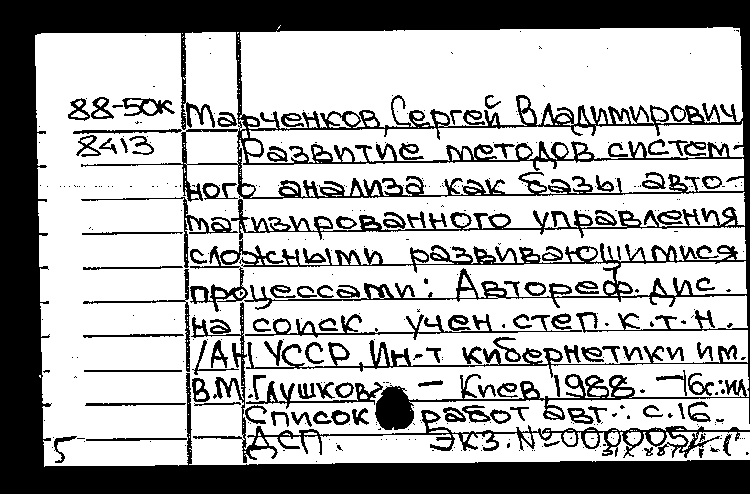 88-50к Марченков, Сергей Владимирович
8413 Развитие методов систем-
ного анализа как базы авто-
матизированного управления
сложными развивающимися
процессами: Автореф. дис.
на соиск. учен. степ. к.т.н.
/АН УССР, Ин-т кибернетики им.
В.М. Глушкова. — Киев, 1988. — 16с.: ил.
Список работ авт.: с.16.
ДСП. Экз. № 000005
5